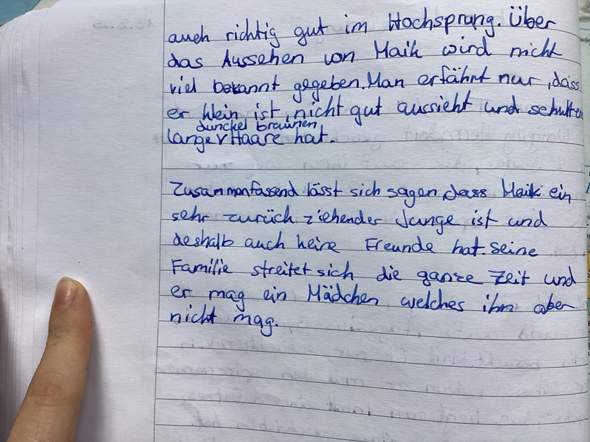 auch richtig gut im Hochsprung. Über
das Aussehen von Maik wird nicht
viel bekannt gegeben. Man erfährt nur, dass
er klein ist, nicht gut aussieht und schulter
dunckel braunen
lange Haare hat.
Zusammenfassend lässt sich sagen, dass Maik ein
sehr zurück ziehender Junge ist und
deshalb auch keine Freunde hat. Seine
Familie streitet sich die ganze Zeit und
er mag ein Mädchen welches ihn aber
nicht mag.